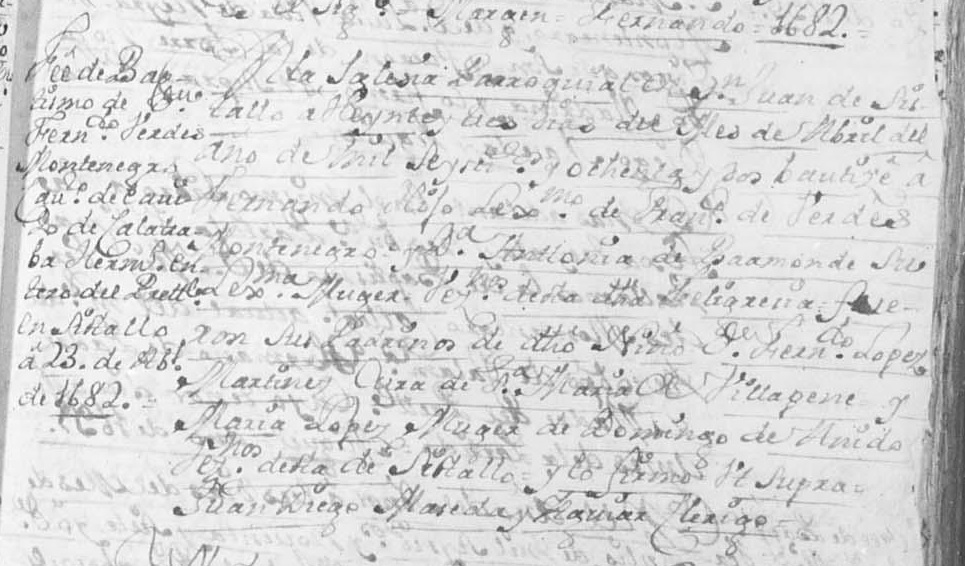 Margen = Hernando = 1682. =
Feê de Bap-
tismo de
Fern.do Verdes
Montenegro
de Calatra-
ba Herm.o en-
tero del
en Sirtallo
â 23. de Ab.l
de 1682. =
En la Iglesia Parroquial de S.n Juan de Sir-
tallo a Veynte y tres dias del Mes de Abril del
año de mil Seysci.os y ochenta y dos bautizê â
Hernando Hijo Lex.mo de Fran.co de Verdes
Montenegro y D.a Antonia de Baamonde Su
Lex.ma Muger Vez.nos desta dha feligresia = fue-
ron Sus Padrinos de dho Niño D.n Fern.do Lopez
Martinez Cura de S.ta Maria de Villapene y
Maria Lopez Muger de Domingo de
Vez.nos desta de Sirtallo = y lo firmo Vt Supra =
Juan Diego Maseda y Aguiar Clerigo =